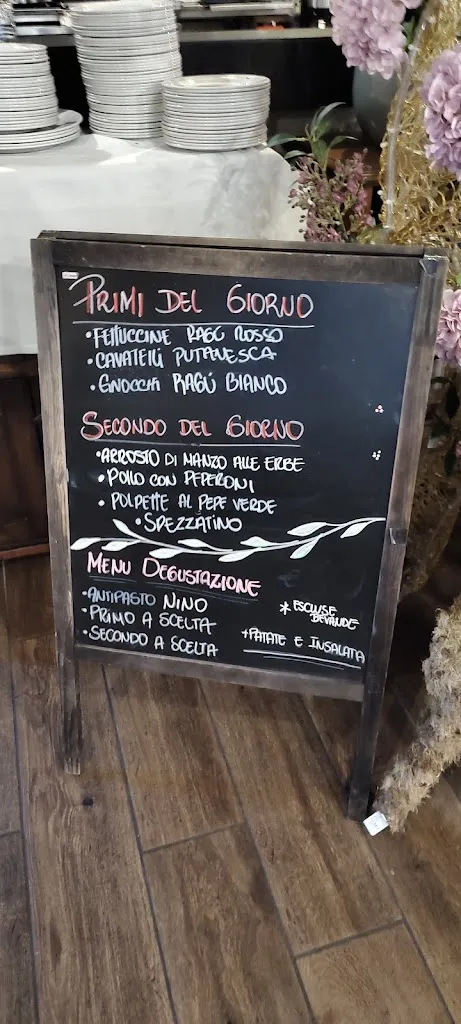 PRIMI DEL GIORNO
• FETTUCCINE RAGÚ ROSSO
• CAVATELLI PUTTANESCA
• GNOCCHI RAGÚ BIANCO
SECONDO DEL GIORNO
• ARROSTO DI MANZO ALLE ERBE
• POLLO CON PEPERONI
• POLPETTE AL PEPE VERDE
• SPEZZATINO
MENU DEGUSTAZIONE
• ANTIPASTO NINO
• PRIMO A SCELTA
• SECONDO A SCELTA
* ESCLUSE
BEVANDE
+ PATATE E INSALATA